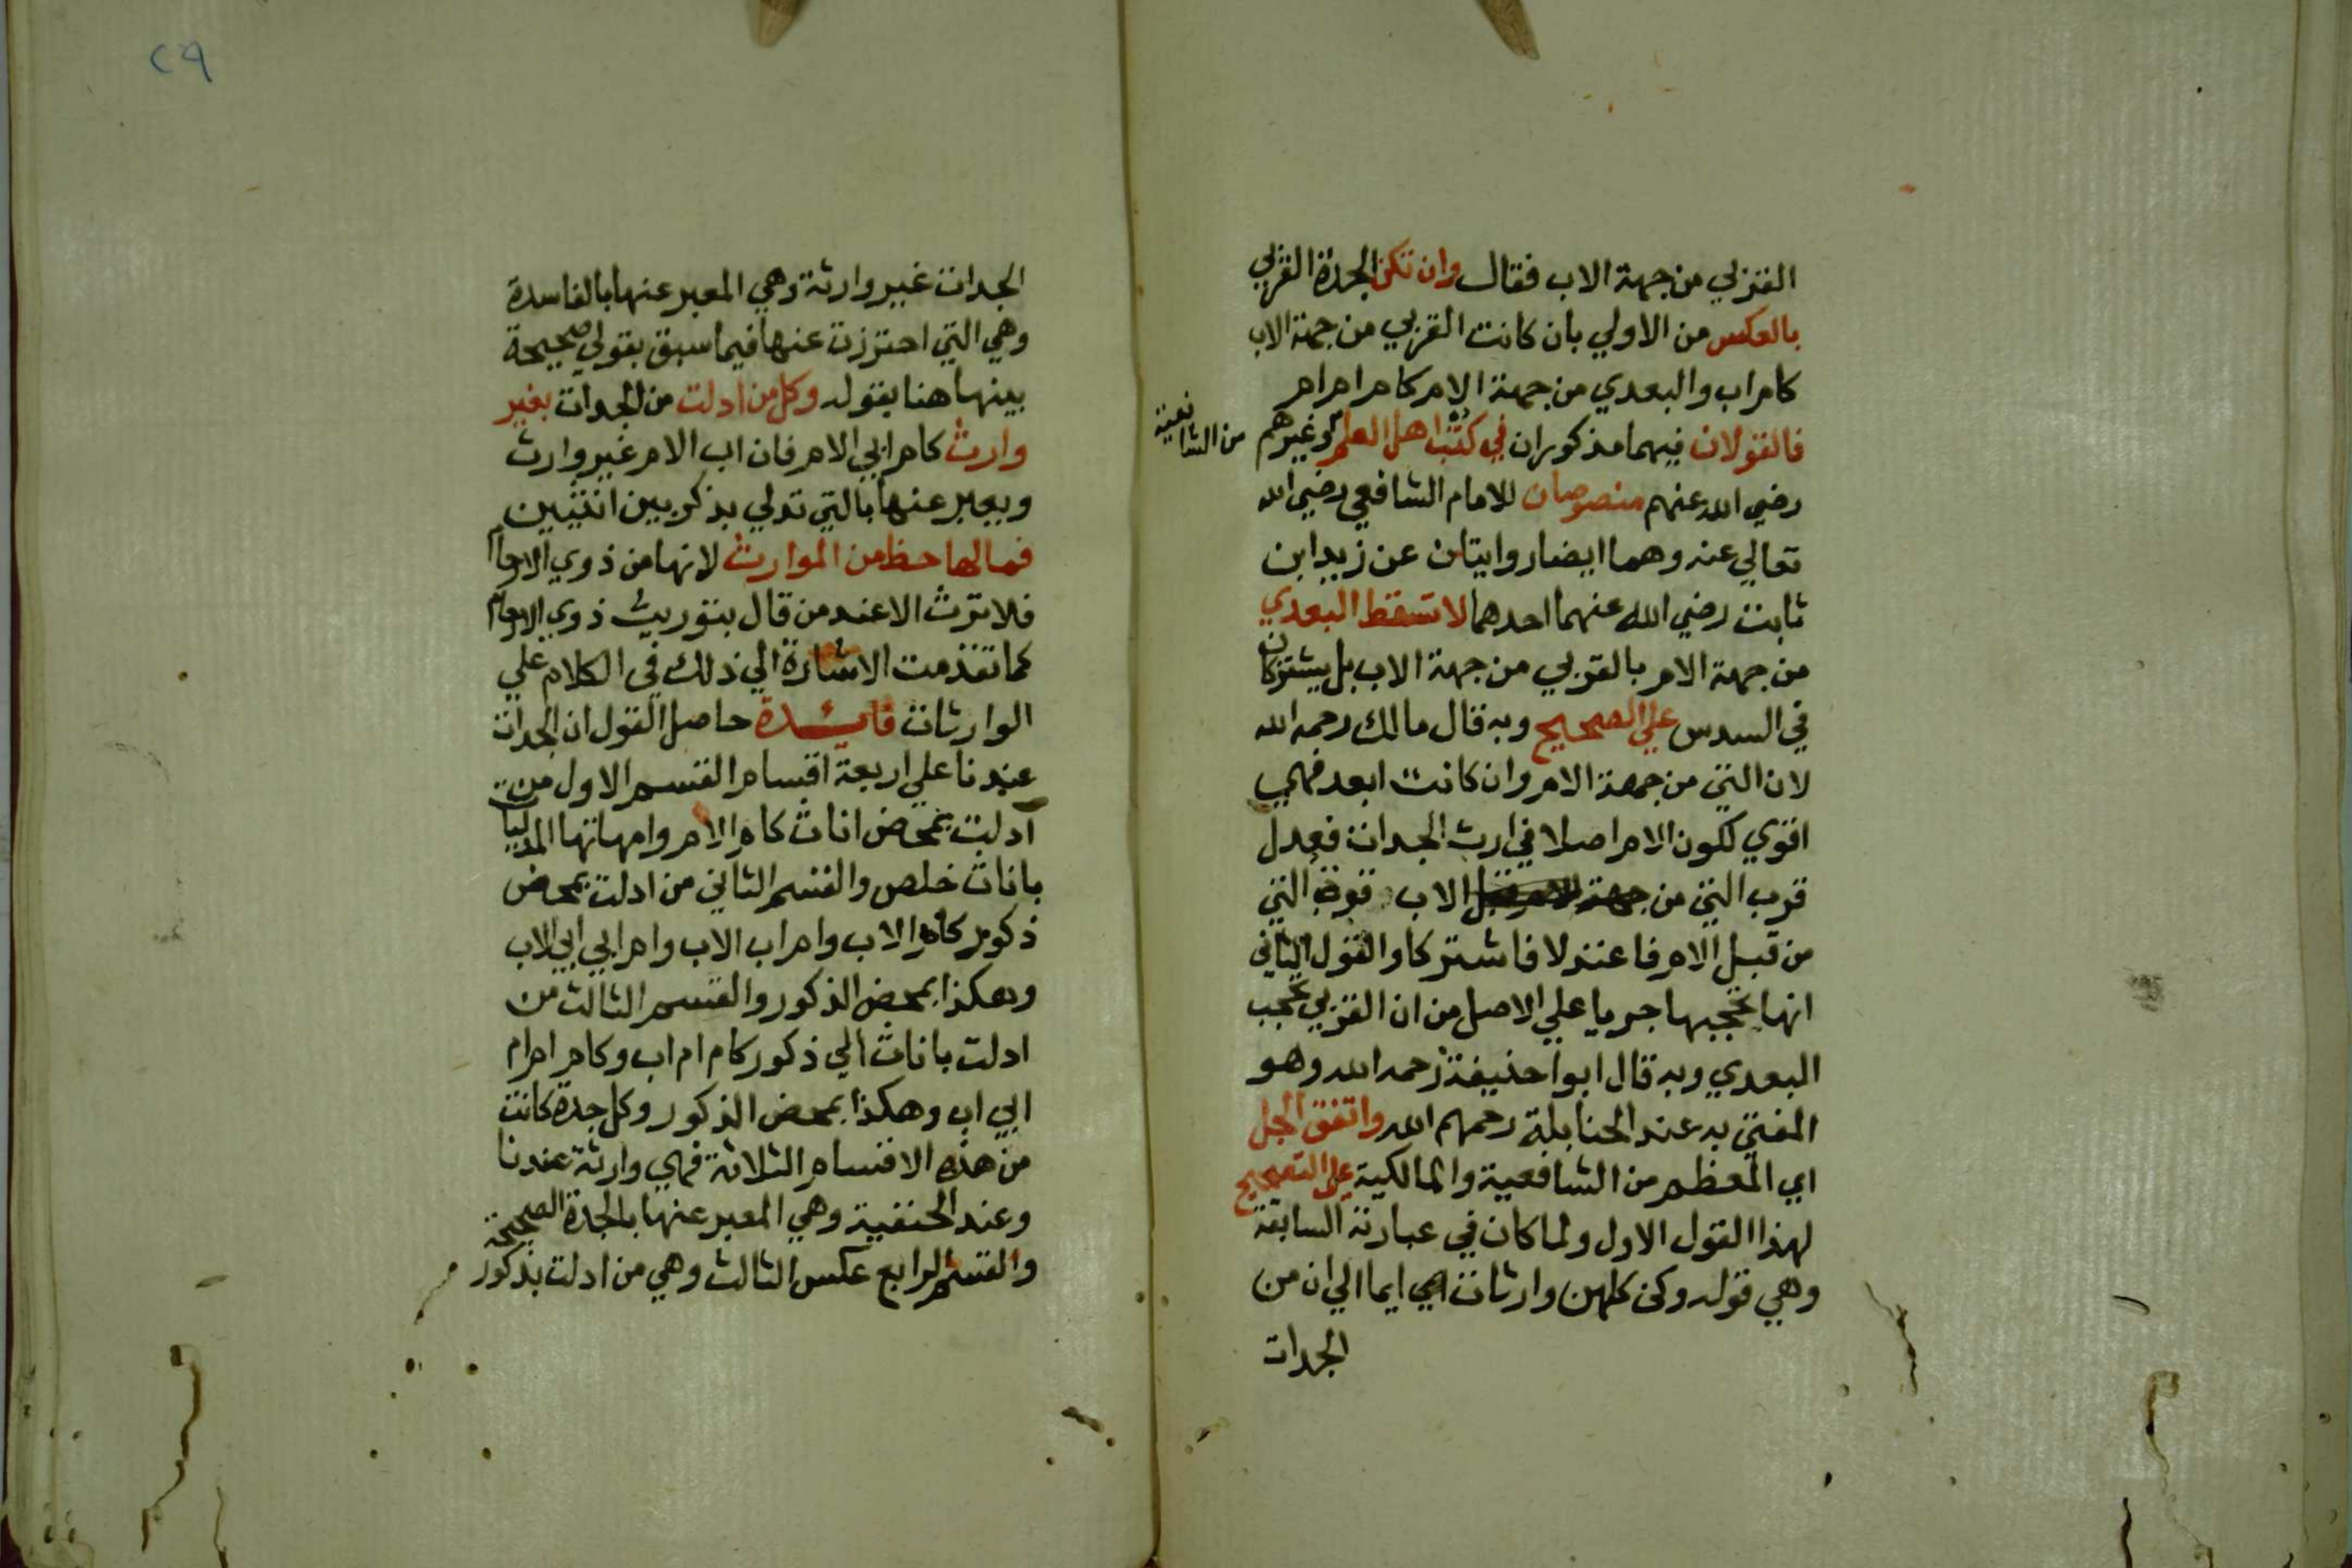 القربي من جهة الاب فقال وان تكن الجدة القربي
بالعكس من الاولي بان كانت القربي من جهة الاب
كام اب والبعدي من جهة الام كام ام ام
فالقولان فيهما مذكوران في كتب اهل العلم وغيرهم
من الشافعية
رضي الله عنهم منصوصان للامام الشافعي رضي الله
تعالي عنه وهما ايضا روايتان عن زيد ابن
ثابت رضي الله عنهما احدهما لا تسقط البعدي
من جهة الام بالقربي من جهة الاب بل يشتركان
في السدس علي الصحيح وبه قال مالك رحمه الله
لان التي من جهة الام وان كانت ابعد فهي
اقوي لكون الام اصلا في ارث الجدات فعدل
قرب التي من قبل الاب قوة التي
من قبل الام فاعتدلا فاشتركا والقول الثاني
انها تحجبها جريا علي الاصل من ان القربي تحجب
البعدي وبه قال ابوا حنيفة رحمه الله وهو
المفتي به عند الحنابلة رحمهم الله واتفق الجل
اي المعظم من الشافعية والمالكية علي التصحيح
لهذا القول الاول ولما كان في عبارته السابقة
وهي قوله وكن كلهن وارثات اي ايما الي ان من
الجدات
٢٩
الجدات غير وارثة وهي المعبر عنها بالفاسدة
وهي التي احترزت عنها فيما سبق بقولي صحيحة
بينها هنا بقوله وكل من ادلت من الجدات بغير
وارث كام ابي الام فان اب الام غير وارث
ويعبر عنها بالتي تدلي بذكر بين انثيين
فما لها حظ من الموارث لانها من ذوي الارحام
فلا ترث الا عند من قال بتوريث ذوي الارحام
كما تقدمت الاشارة الي ذلك في الكلام علي
الوارثات فايدة حاصل القول ان الجدات
عندنا علي اربعة اقسام القسم الاول من
ادلت بمحض اناث كام الام وامهاتها المدليات
باناث خلص والقسم الثاني من ادلت بمحض
ذكور كام الاب وام اب الاب وام ابي ابي الاب
وهكذا بمحض الذكور والقسم الثالث من
ادلت باناث الي ذكور كام ام اب وكام ام ام
ابي اب وهكذا بمحض الذكور وكل جدة كانت
من هذه الاقسام الثلاثة فهي وارثة عندنا
وعند الحنفية وهي المعبر عنها بالجدة الصحيحة
والقسم الرابع عكس الثالث وهي من ادلت بذكور